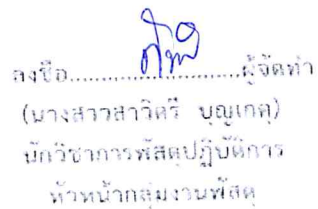 ลงชื่อ..............................ผู้จัดทำ
(นางสาวสาวิตรี บุญเกตุ)
นักวิชาการพัสดุปฏิบัติการ
หัวหน้ากลุ่มงานพัสดุ